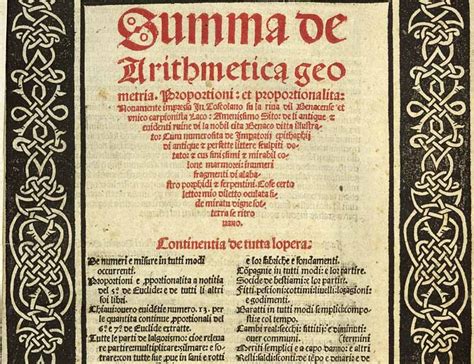 Summa de
Arithmetica geo
metria. Proportioni: et proportionalita:
Novamente impressa In Toscolano su la riva dil Benacense et
unico carpionista Laco: Amenissimo Sito: de li antique &
evidenti ruine di la nobil cita Benaco ditta illustra
to: Cum numerosita de Imperatorii epithaphii
di antique & perfette littere sculpiti do
tato: & cum finissimi & mirabil colo
ne marmorei: inumeri
fragmenti di alaba
stro porphidi & serpentini. Cose certo
lettor mio diletto oculata fi
de miratu digne sot
terra se ritro
vano.
Continentia de tutta lopera:
De numeri e misure in tutti modi
occurrenti.
Proportioni e pportionalita a notitia
del 5º de Euclide: e de tutti li altri
soi libri.
Chiavi ouero euidētie numero. 13. per
le quantita continue pportionali del
6º e 7º de Euclide extratte.
Tutte le parti de lalgorismo: cioe releua
re partire multiplicar summare e so
trare con tutte sue pue in sani e rotti
e lor fabriche e fondamenti.
Cōpagnie in tutti modi: e lor partire.
Socide de bestiami: e lor partire
Fitti: pescioni: cottimi: livelli: logagioni:
e godimenti.
Baratti in tutti modi semplici: compo
sti: e col tempo.
Cambi reali: secchi: fittitii: e diminuti
ouer communi.
Meriti semplici e a capo danno: e altri